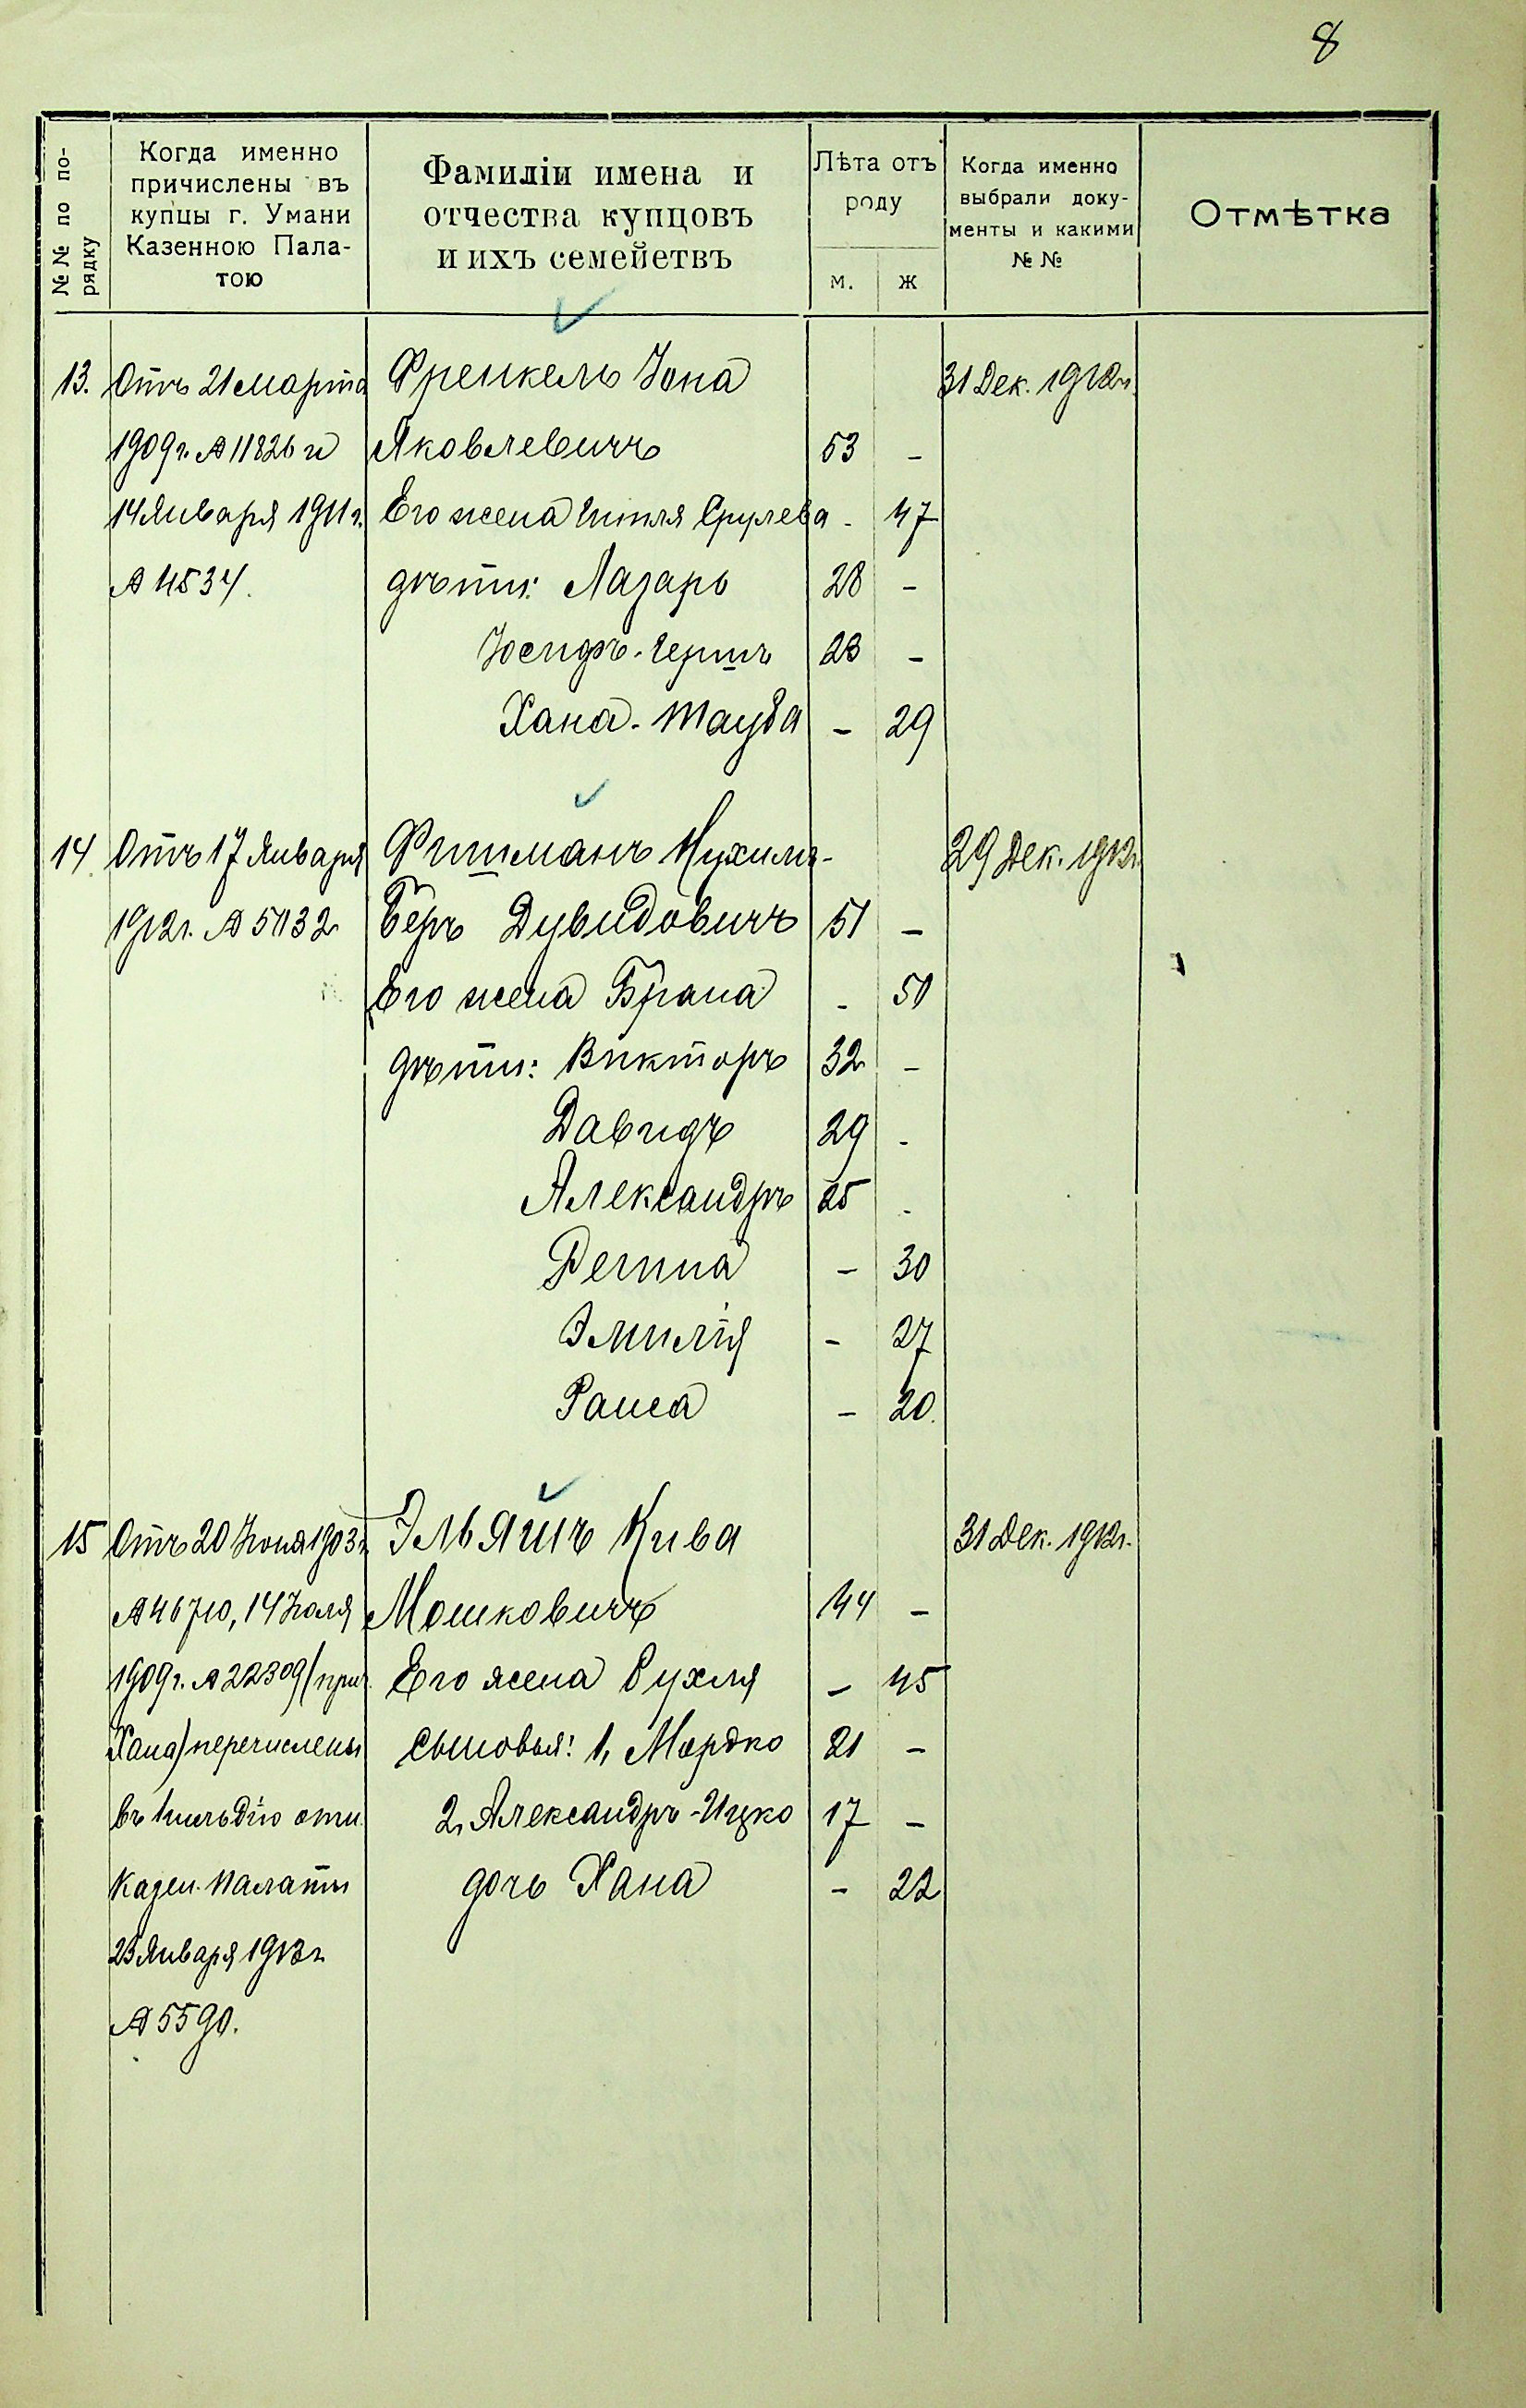 8
№№ по по-
рядку
Когда именно
причислены въ
купцы г. Умани
Казенною Пала-
тою
Фамиліи имена и
отчества купцовъ
и ихъ семействъ
Лѣта отъ
роду
м. ж
Когда именно
выбрали доку-
менты и какими
№ №
Отмѣтка
13. Отъ 21 марта Френкель Іона 31 Дек. 1912 г.
1909 г. № 11826 и Яковлевичъ 53 -
14 Января 1911 г. Его жена Срулева - 47
№ 4534. дѣти: Лазарь 28 -
Іосифъ-Гершъ 23 -
Хана-Тауба - 29
14. Отъ 17 Января Фишманъ Нухимъ- 29 Дек. 1912 г.
1912 г. № 5032 Беръ Дувидовичъ 51 -
Его жена Брана - 50
дѣти: Викторъ 32 -
Давидъ 29 -
Александръ 25 -
Регина - 30
Эмилія - 27
Раиса - 20
15 Отъ 20 Іюня 1903 г. Эльяшъ Кива 31 Дек. 1912 г.
№ 46710, 14 Іюля Мошковичъ 44 -
1909 г. № 22309 (прич. Его жена Рухля - 45
Хана) перечислены сыновья: 1, Мордко 21 -
въ 1 гильдію отн. 2, Александръ-Ицко 17 -
Казен. Палаты дочь Хана - 22
23 Января 1913 г.
№ 5590.